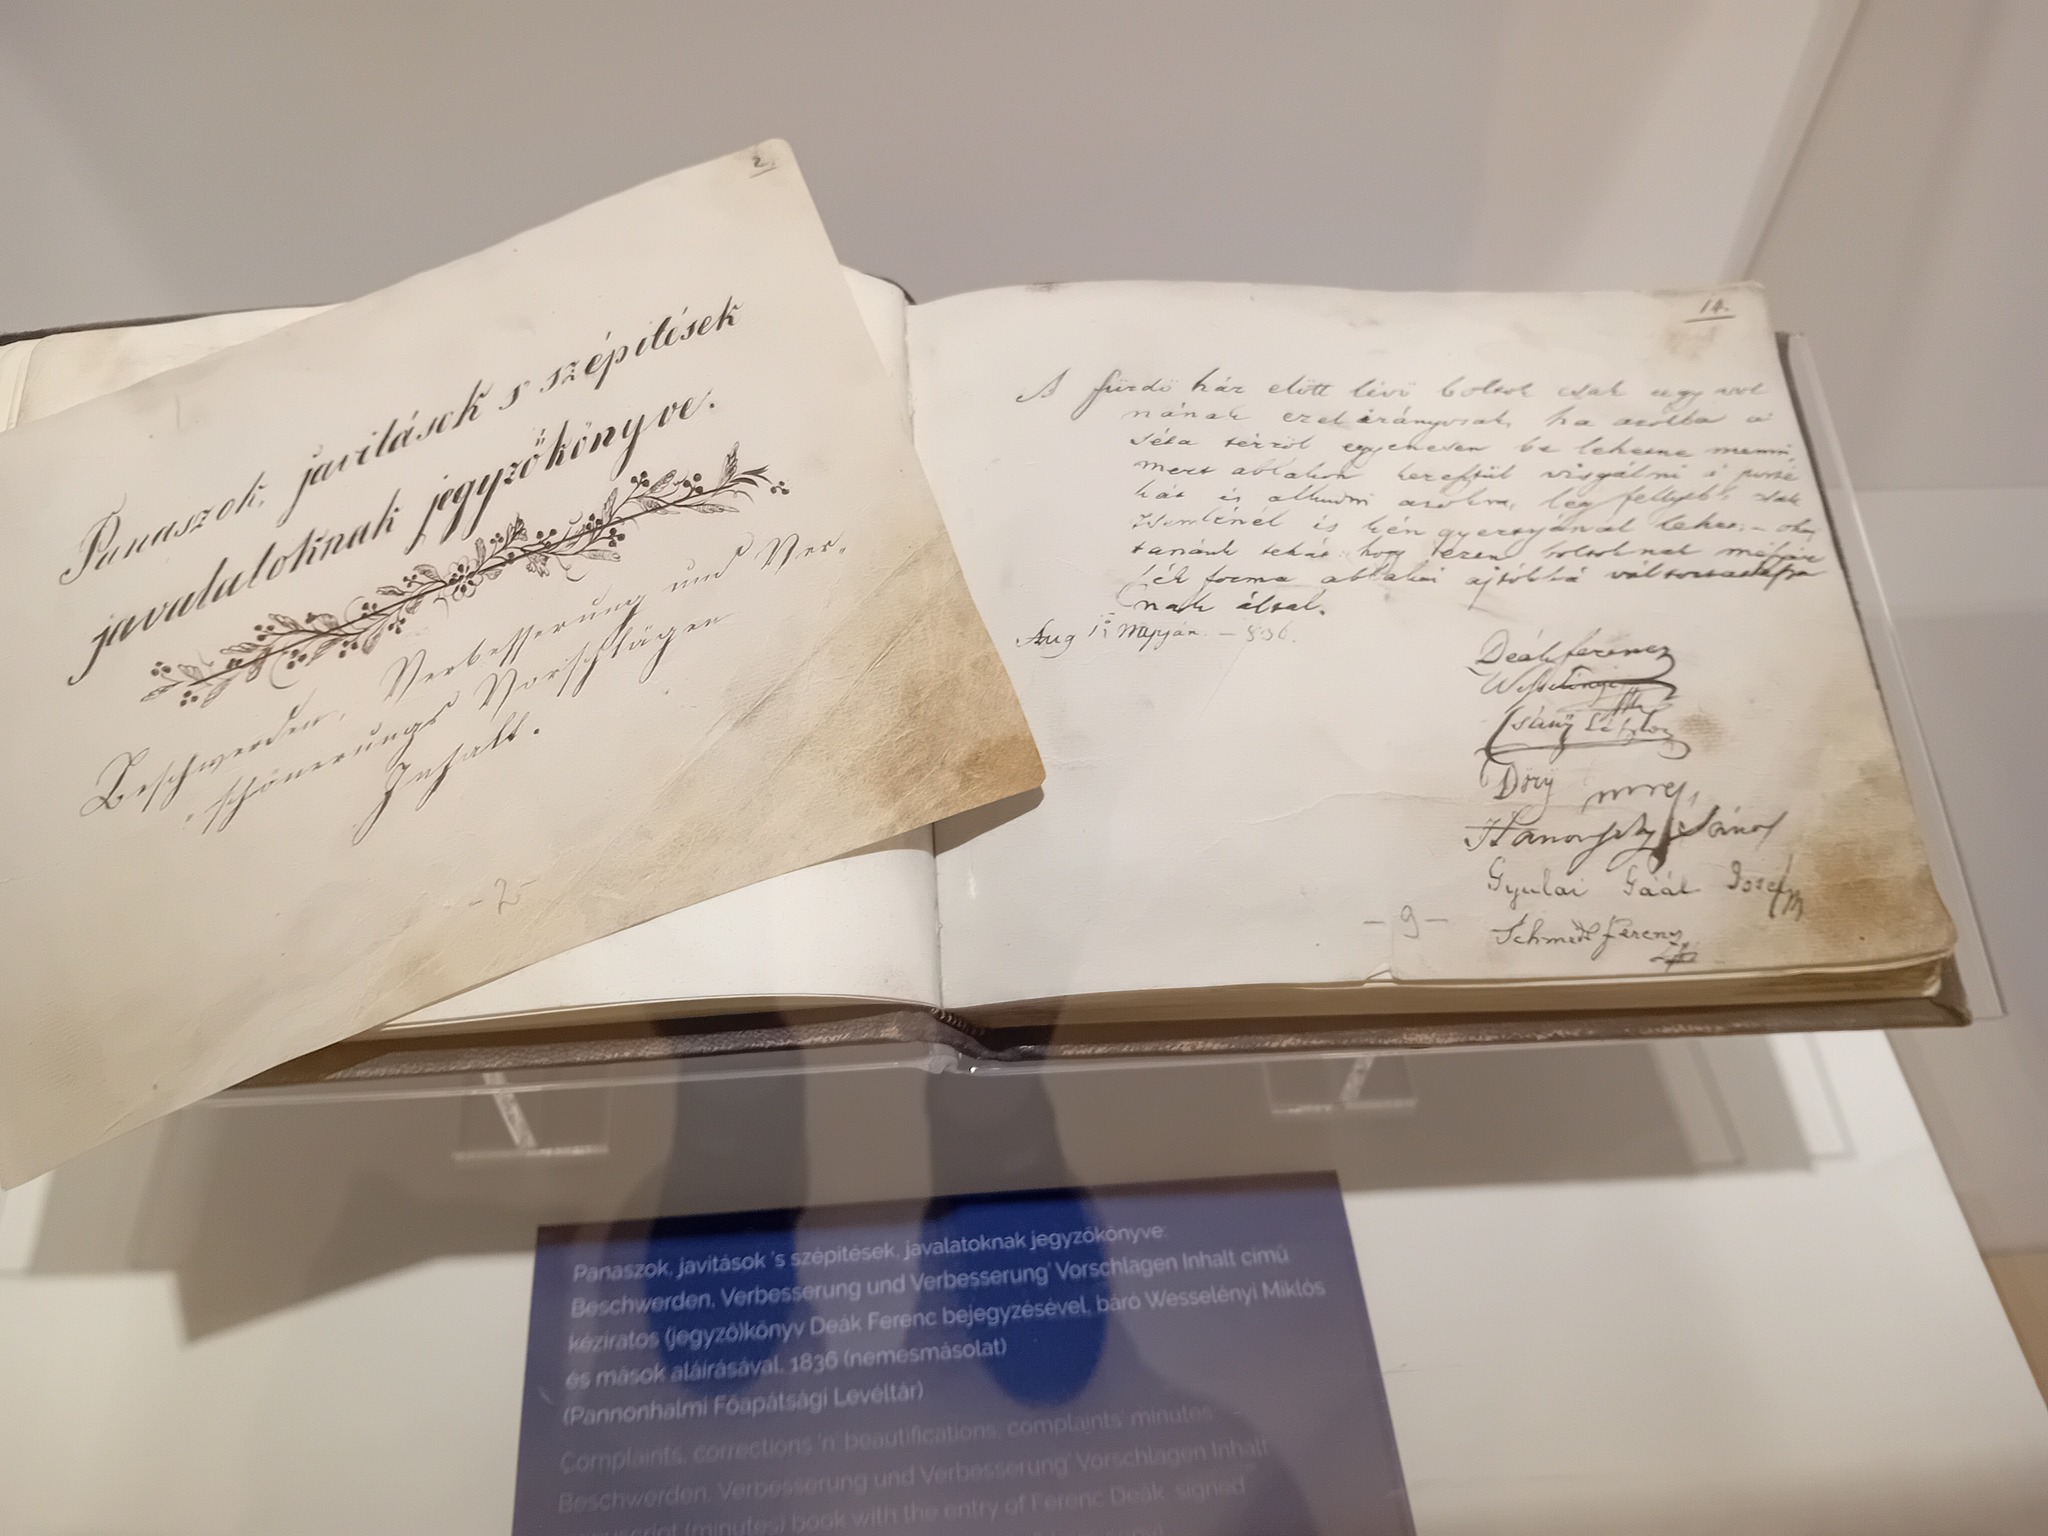 2
Panaszok, javitások 's szépitések
javalatoknak jegyzőkönyve.
Beschwerden, Verbesserung und Ver-
schönerungs Vorschlägen
Inhalt.
- 2 -
14.
A fürdő ház előtt lévő boltok csak úgy
nának ha azokba a
séta térről egyenesen be lehetne menni,
mert ablakon keresztül visgálni 's
és alkudni
és gyertyánál lehet. – ohaj
tanánk tehát hogy ezen boltoknak
forma ablakai ajtókká
nak által.
Aug Napján. – 836.
Deák Ferencz
Wesselényi
Csány László
Dőry
János
Gyulai Gaál Josef
Schmidt Ferencz
- 9 -
Panaszok, javitások 's szépitések, javalatoknak jegyzőkönyve:
Beschwerden, Verbesserung und Verbesserung' Vorschlagen Inhalt című
kéziratos (jegyző)könyv Deák Ferenc bejegyzésével, báró Wesselényi Miklós
és mások aláírásával, 1836 (nemesmásolat)
(Pannonhalmi Főapátsági Levéltár)
Complaints, corrections 'n' beautifications, complaints' minutes
Beschwerden, Verbesserung und Verbesserung' Vorschlagen Inhalt
(minutes) book with the entry of Ferenc Deák, signed